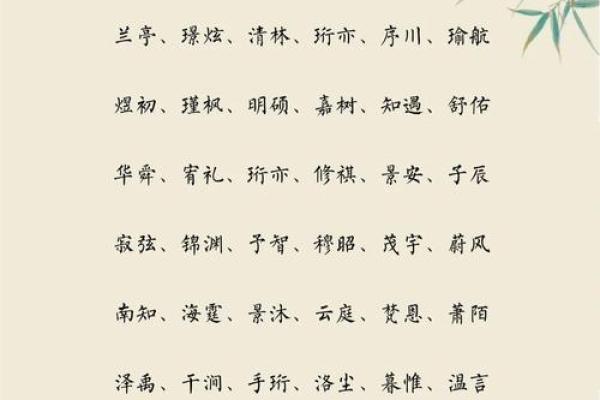 兰亭、璟炫、清林、珩亦、序川、瑜航
煜初、瑾枫、明硕、嘉树、知遇、舒佑
华舜、宥礼、珩亦、修祺、景安、子辰
寂弦、锦渊、予智、穆昭、茂宇、蔚风
南知、海霆、景沐、云庭、梵恩、萧陌
泽禹、干涧、手珩、洛尘、暮惟、温言